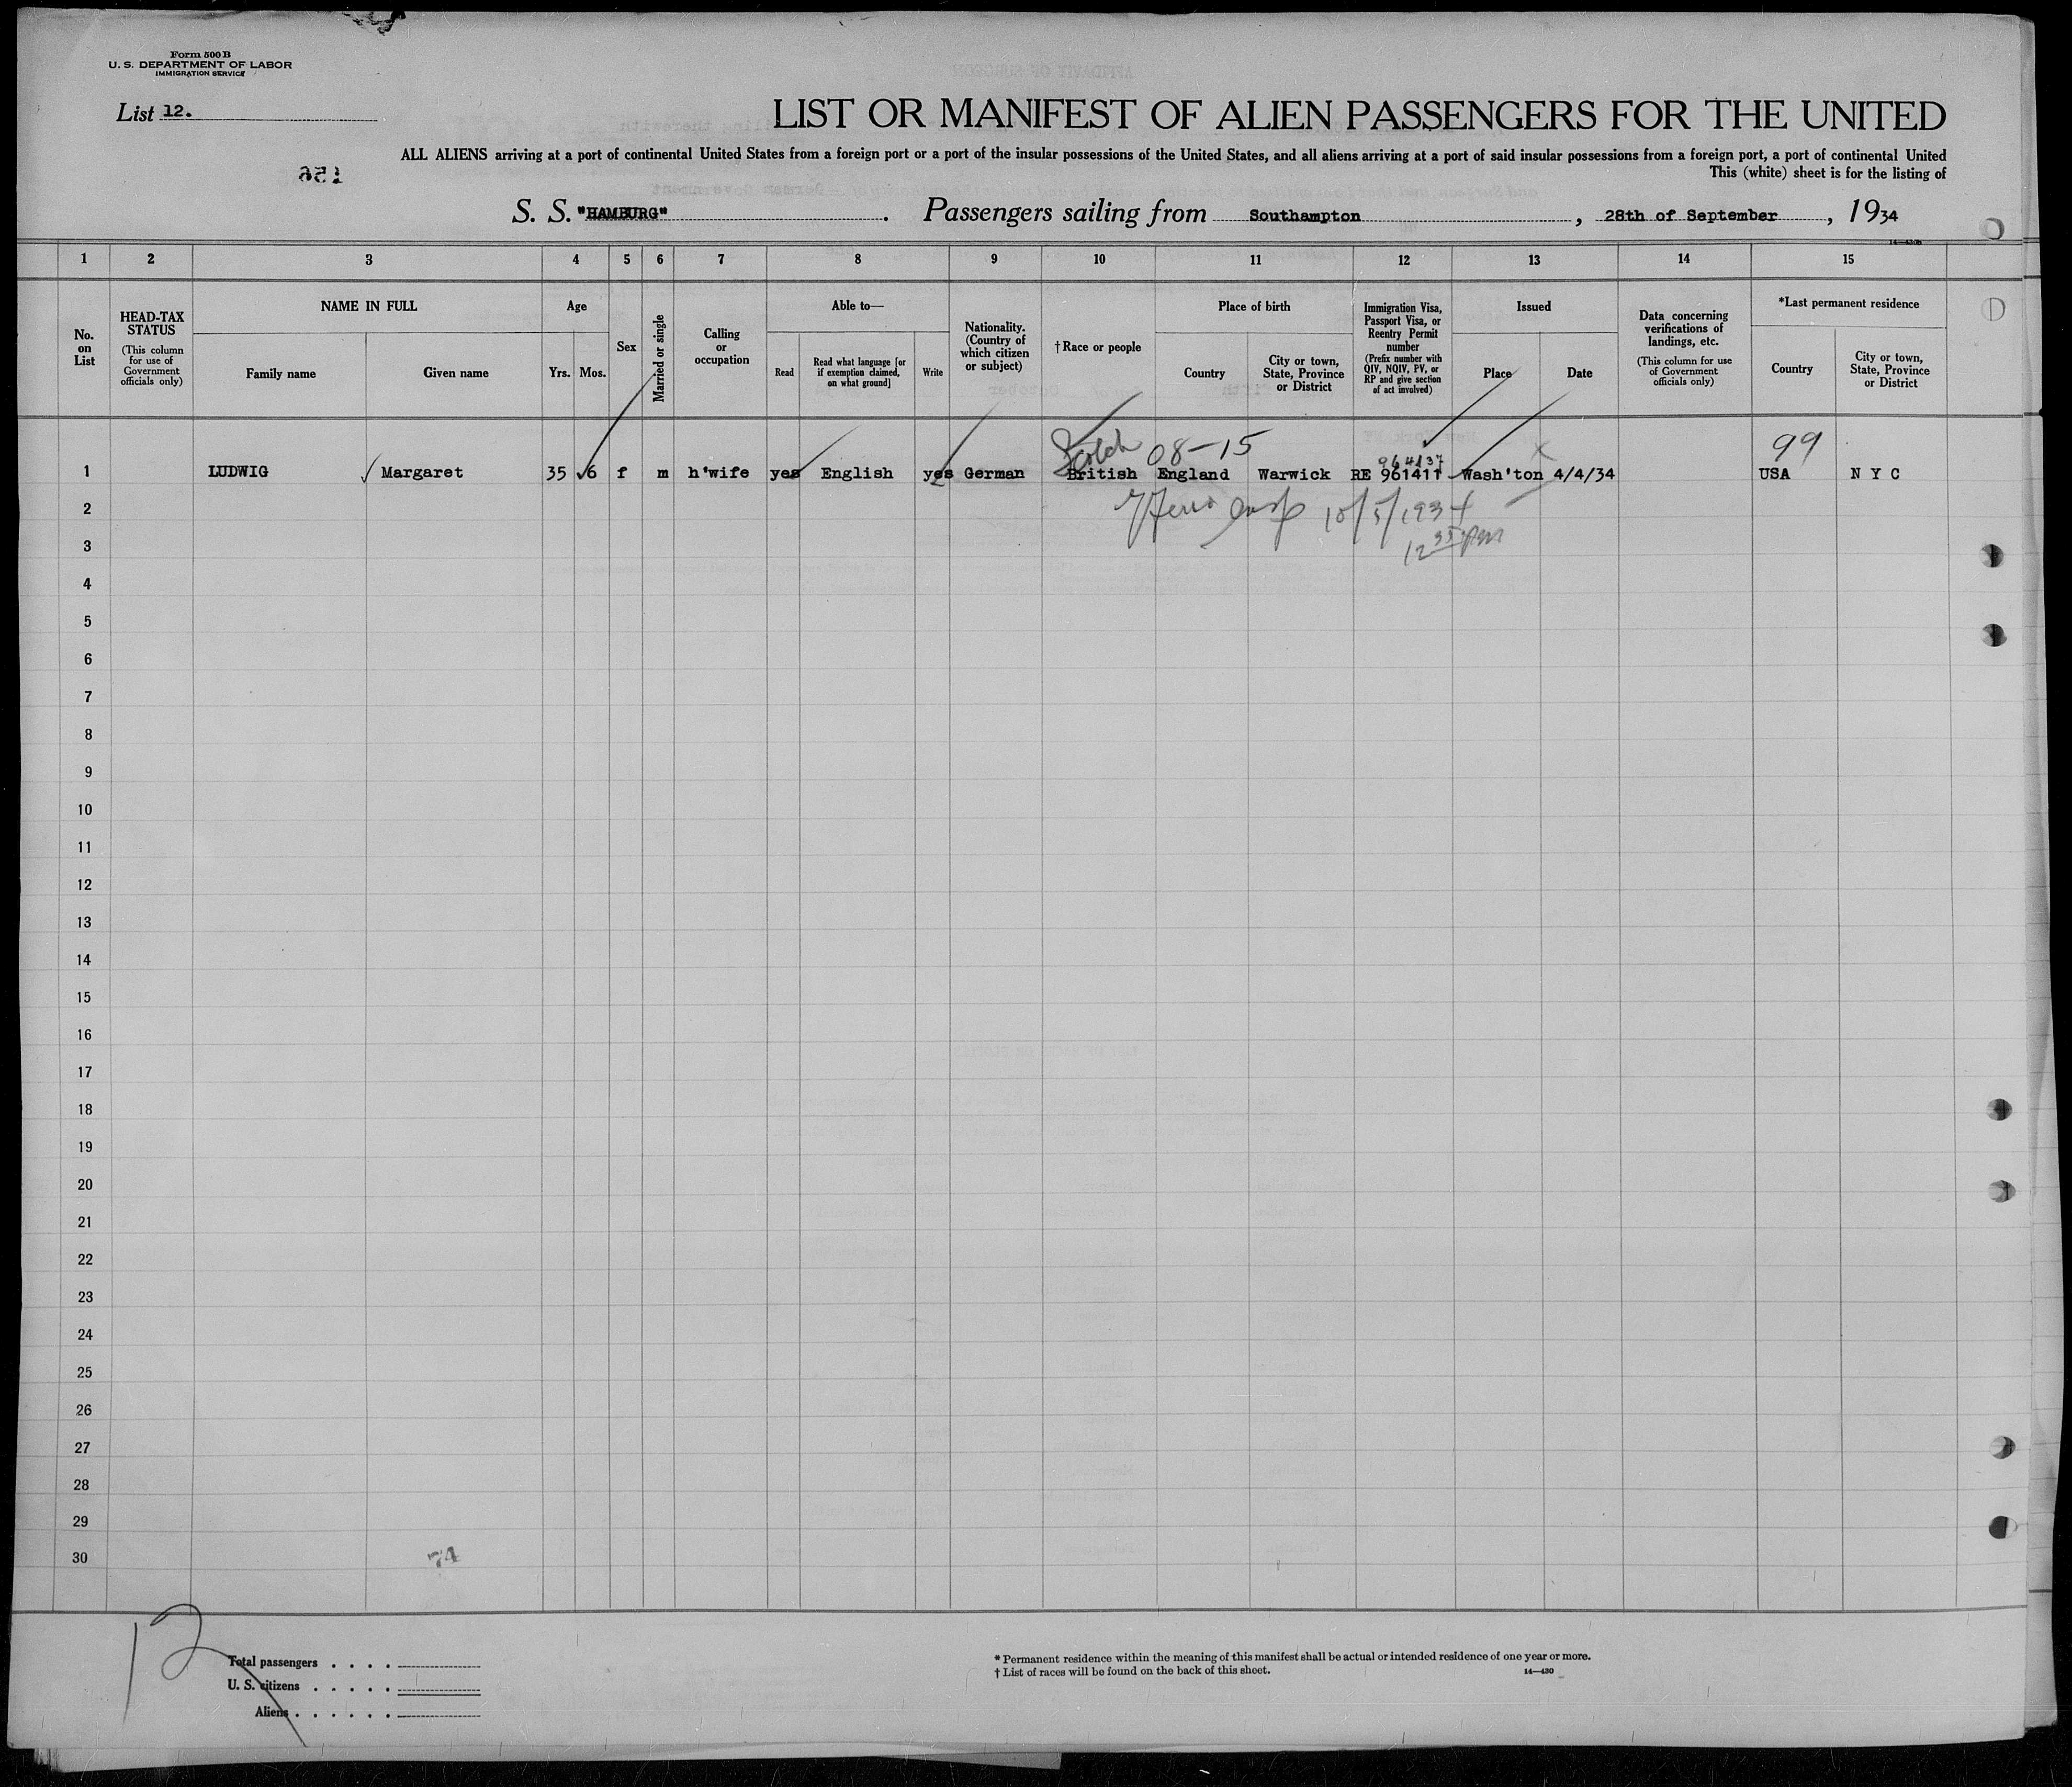 Form 500 B
U. S. DEPARTMENT OF LABOR
IMMIGRATION SERVICE
List 12.
LIST OR MANIFEST OF ALIEN PASSENGERS FOR THE UNITED
ALL ALIENS arriving at a port of continental United States from a foreign port or a port of the insular possessions of the United States, and all aliens arriving at a port of said insular possessions from a foreign port, a port of continental United
This (white) sheet is for the listing of
S. S. "HAMBURG" . Passengers sailing from Southampton , 28th of September , 1934
1 2 3 4 5 6 7 8 9 10 11 12 13 14 15
No. on List
HEAD-TAX STATUS (This column for use of Government officials only)
NAME IN FULL
Family name
Given name
Age
Yrs. Mos.
Sex
Married or single
Calling or occupation
Able to—
Read
Read what language [or if exemption claimed, on what ground]
Write
Nationality. (Country of which citizen or subject)
†Race or people
Place of birth
Country
City or town, State, Province or District
Immigration Visa, Passport Visa, or Reentry Permit number (Prefix number with QIV, NQIV, PV, or RP and give section of act involved)
Issued
Place
Date
Data concerning verifications of landings, etc. (This column for use of Government officials only)
*Last permanent residence
Country
City or town, State, Province or District
Scotch 08-15 964137 99
1 LUDWIG Margaret 35 6 f m h'wife yes English yes German British England Warwick RE 961411 Wash'ton 4/4/34 USA N Y C
2 10/5/1934
3
4
5
6
7
8
9
10
11
12
13
14
15
16
17
18
19
20
21
22
23
24
25
26
27
28
29
30
74
12
Total passengers
U. S. citizens
Aliens
* Permanent residence within the meaning of this manifest shall be actual or intended residence of one year or more.
† List of races will be found on the back of this sheet.
14—430